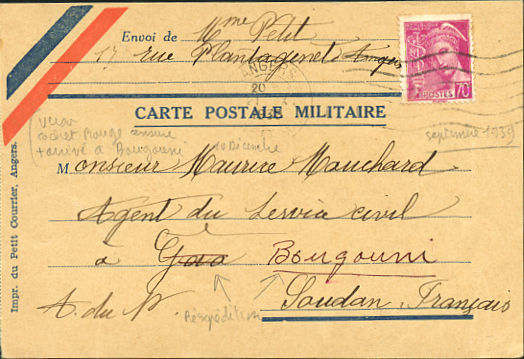 Envoi de Mme Petit
17 rue Plantagenet Angers
ANGERS
20
POSTES 70c
CARTE POSTALE MILITAIRE
septembre 1939
cachet rouge censure
+ arrivé à Bougouni 10 Décembre
Monsieur Maurice Mouchard
Agent du Service civil
à Gao Bougouni
A. du N. Réexpédition Soudan Français
Impr. du Petit Courrier, Angers.